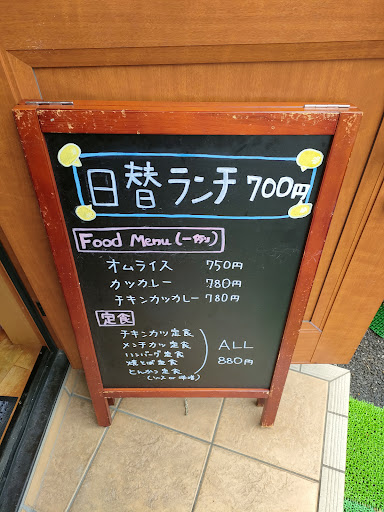 日替ランチ 700円
Food Menu (一例)
オムライス 750円
カツカレー 780円
チキンカツカレー 780円
定食
チキンカツ定食
メンチカツ定食
ハンバーグ定食
焼とば定食
とんかつ定食
(ソース or 味噌)
ALL
880円